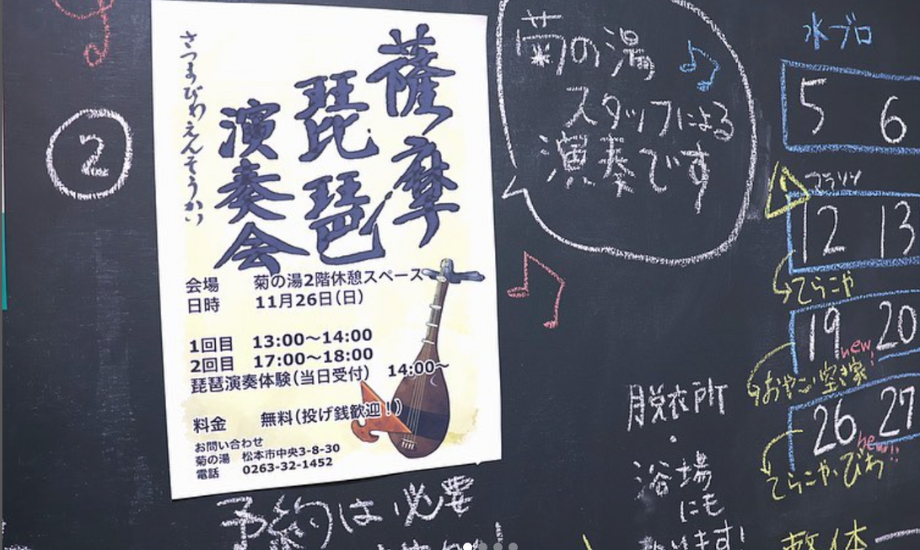 ②
薩摩
琵琶
演奏会
さつまびわえんそうかい
会場 菊の湯2階休憩スペース
日時 11月26日(日)
1回目 13:00～14:00
2回目 17:00～18:00
琵琶演奏体験(当日受付) 14:00～
料金 無料(投げ銭歓迎!)
お問い合わせ
菊の湯 松本市中央3-8-30
電話 0263-32-1452
予約は必要
菊の湯
スタッフによる
演奏です
脱衣所
・
浴場
にも
水ブロ
5 6
12 13
てらこや
19 20
new!
おやこ空き家
26 27
new!!
てらこや・びわ
整体